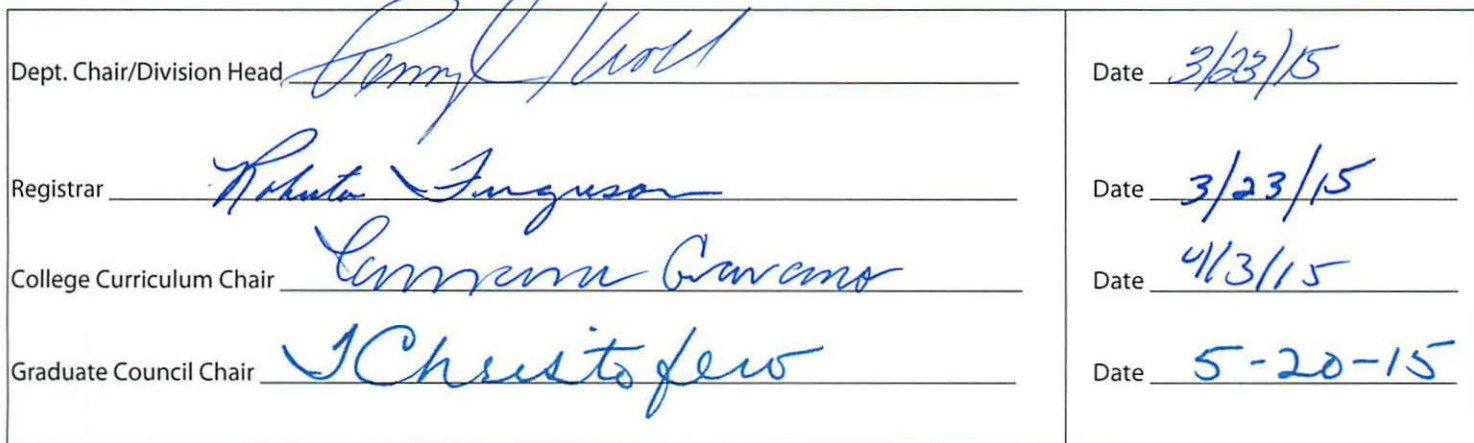 Dept. Chair/Division Head Date 3/23/15
Registrar Roberta Ferguson Date 3/23/15
College Curriculum Chair Date 4/3/15
Graduate Council Chair T Christofero Date 5-20-15